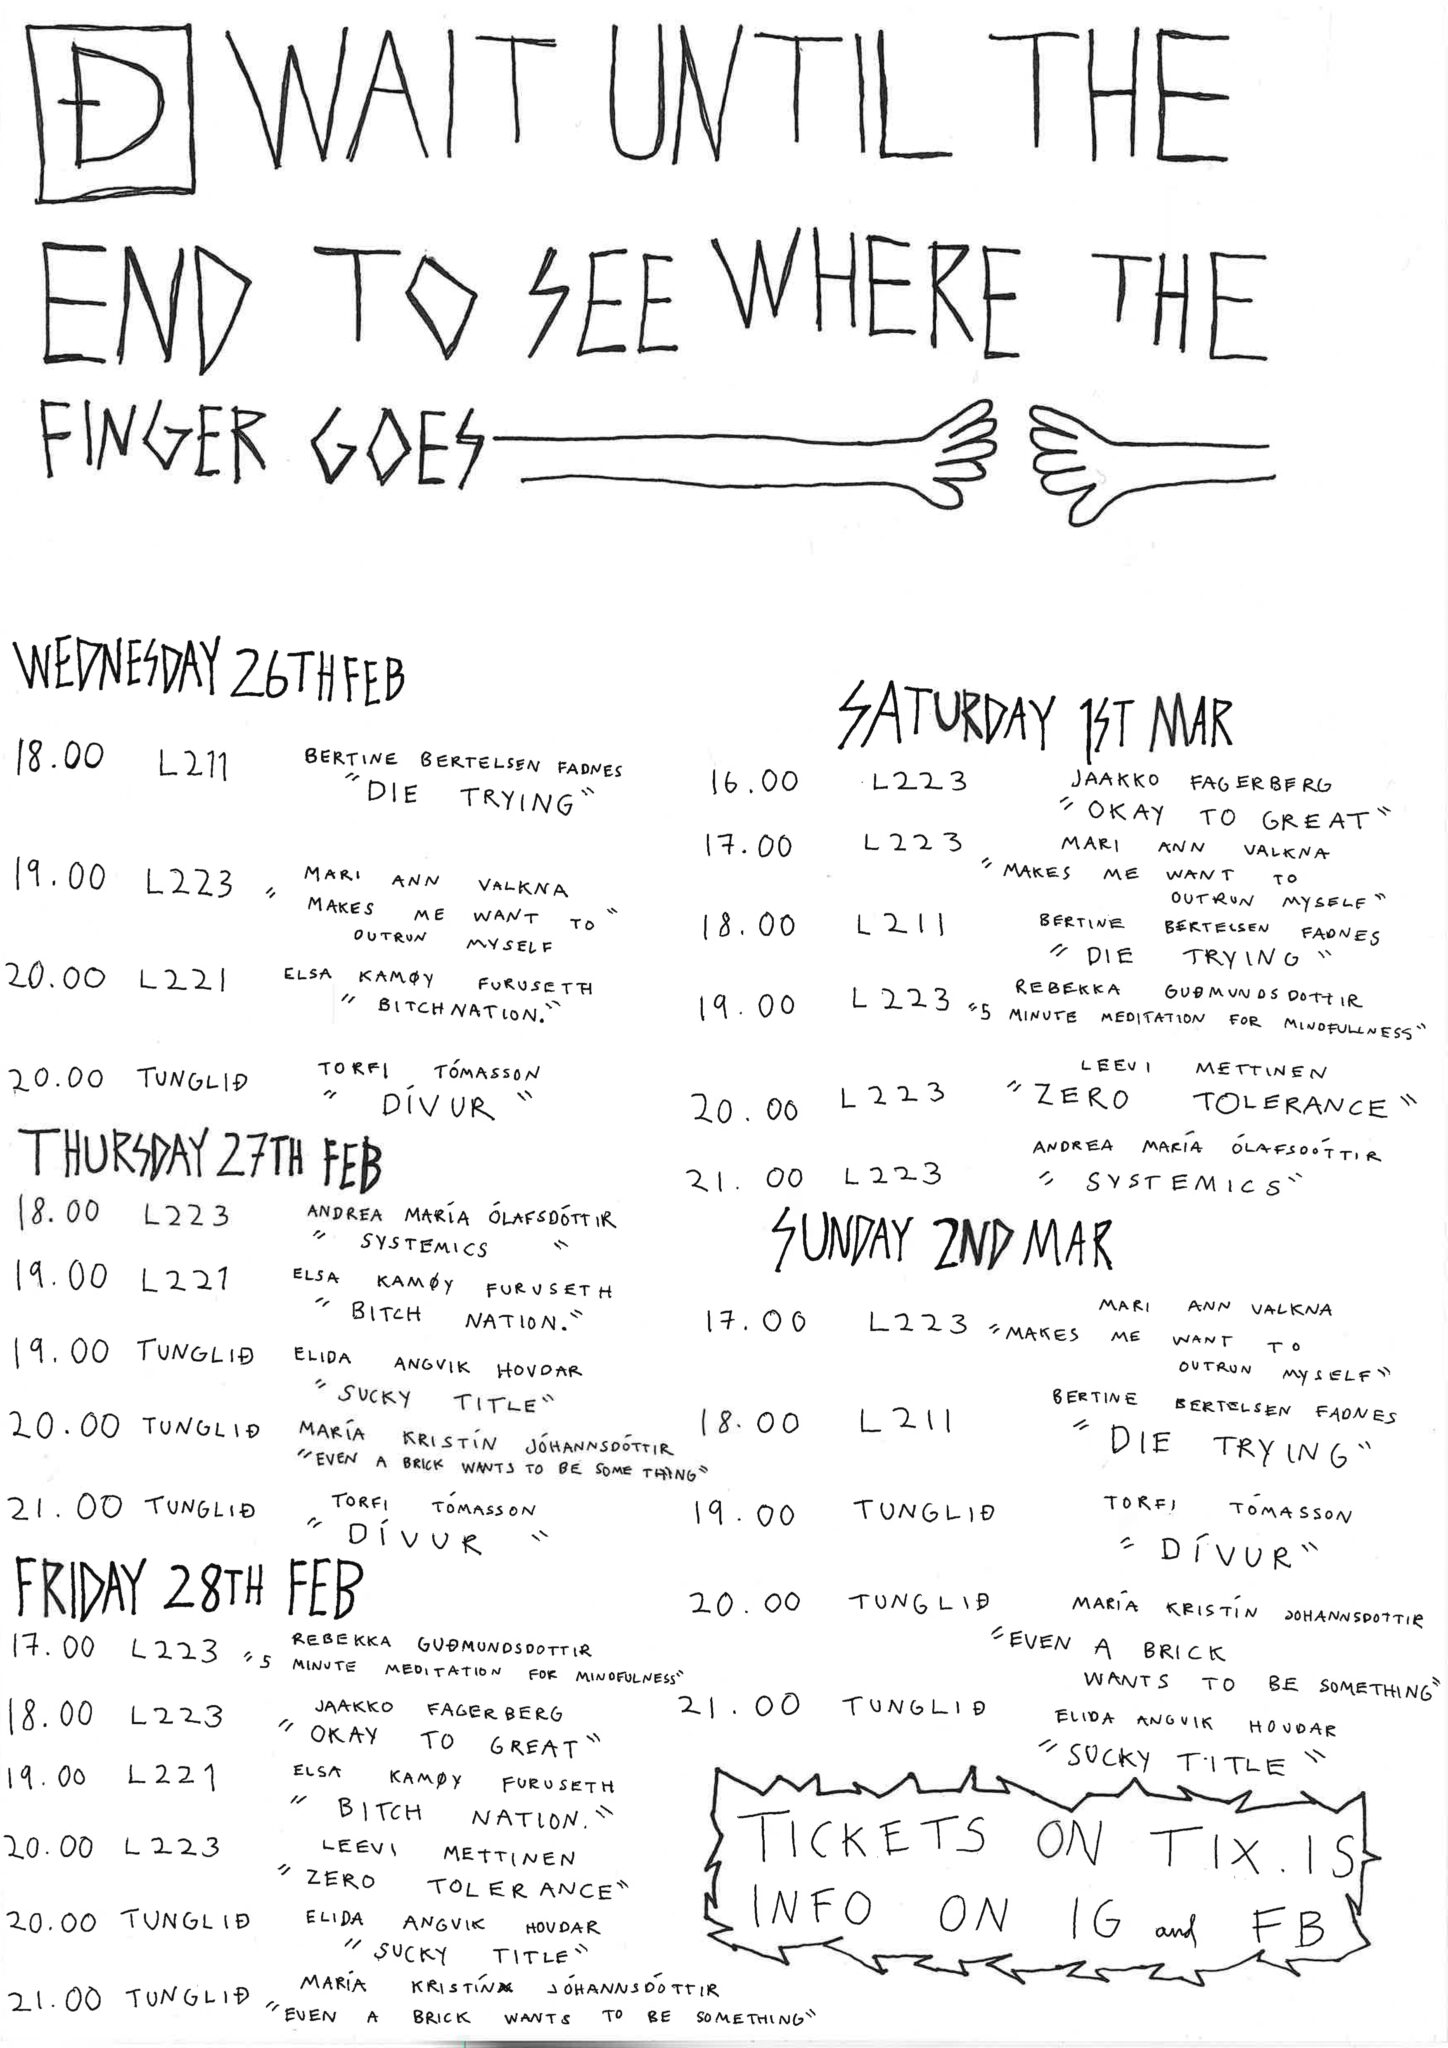 Ð WAIT UNTIL THE
END TO SEE WHERE THE
FINGER GOES
WEDNESDAY 26TH FEB
18.00 L211 BERTINE BERTELSEN FADNES
"DIE TRYING"
19.00 L223 MARI ANN VALKNA
"MAKES ME WANT TO"
OUTRUN MYSELF
20.00 L221 ELSA KAMØY FURUSETH
"BITCHNATION."
20.00 TUNGLIÐ TORFI TÓMASSON
"DÍVUR"
THURSDAY 27TH FEB
18.00 L223 ANDREA MARÍA ÓLAFSDÓTTIR
"SYSTEMICS"
19.00 L221 ELSA KAMØY FURUSETH
"BITCH NATION."
19.00 TUNGLIÐ ELIDA ANGVIK HOVDAR
"SUCKY TITLE"
20.00 TUNGLIÐ MARÍA KRISTÍN JÓHANNSDÓTTIR
"EVEN A BRICK WANTS TO BE SOME THING"
21.00 TUNGLIÐ TORFI TÓMASSON
"DÍVUR"
FRIDAY 28TH FEB
17.00 L223 REBEKKA GUÐMUNDSDOTTIR
"5 MINUTE MEDITATION FOR MINDFULNESS"
18.00 L223 JAAKKO FAGERBERG
"OKAY TO GREAT"
19.00 L221 ELSA KAMØY FURUSETH
"BITCH NATION."
20.00 L223 LEEVI METTINEN
"ZERO TOLERANCE"
20.00 TUNGLIÐ ELIDA ANGVIK HOVDAR
"SUCKY TITLE"
21.00 TUNGLIÐ MARÍA KRISTÍN JÓHANNSDÓTTIR
"EVEN A BRICK WANTS TO BE SOMETHING"
SATURDAY 1ST MAR
16.00 L223 JAAKKO FAGERBERG
"OKAY TO GREAT"
17.00 L223 MARI ANN VALKNA
"MAKES ME WANT TO
OUTRUN MYSELF"
18.00 L211 BERTINE BERTELSEN FADNES
"DIE TRYING"
19.00 L223 REBEKKA GUÐMUNDSDOTTIR
"5 MINUTE MEDITATION FOR MINDFULLNESS"
20.00 L223 LEEVI METTINEN
"ZERO TOLERANCE"
21.00 L223 ANDREA MARÍA ÓLAFSDÓTTIR
"SYSTEMICS"
SUNDAY 2ND MAR
17.00 L223 MARI ANN VALKNA
"MAKES ME WANT TO
OUTRUN MYSELF"
18.00 L211 BERTINE BERTELSEN FADNES
"DIE TRYING"
19.00 TUNGLIÐ TORFI TÓMASSON
"DÍVUR"
20.00 TUNGLIÐ MARÍA KRISTÍN JÓHANNSDOTTIR
"EVEN A BRICK
WANTS TO BE SOMETHING"
21.00 TUNGLIÐ ELIDA ANGVIK HOVDAR
"SUCKY TITLE"
TICKETS ON TIX.IS
INFO ON IG and FB